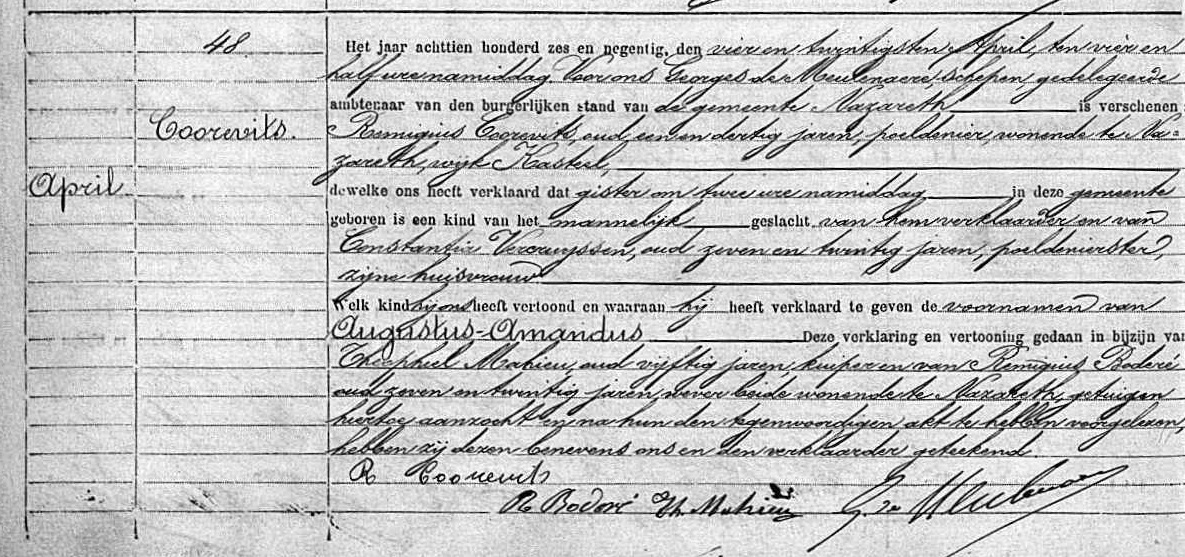 48
Coorevits.
April
Het jaar achttien honderd zes en negentig, den vier en twintigsten April, ten vier en
half ure namiddag Voor ons Georges de Meulenaere, schepen, gedelegeerde
ambtenaar van den burgerlijken stand van de gemeente Nazareth is verschenen
Remigius Coorevits, oud een en dertig jaren, poeldenier, wonende te Na-
zareth, wijk Kasteel,
dewelke ons heeft verklaard dat gister om twee ure namiddag in deze gemeente
geboren is een kind van het mannelijk geslacht van hem verklaarder en van
Constantia Vercruyssen, oud zeven en twintig jaren, poeldenierster,
zijne huisvrouw
Welk kind hij ons heeft vertoond en waaraan hij heeft verklaard te geven de voornamen van
Augustus-Amandus Deze verklaring en vertooning gedaan in bijzijn van
Theophiel Mahieu, oud vijftig jaren, kuiper en van Remigius Bodoré
oud zeven en twintig jaren, wever beide wonende te Nazareth, getuigen
hiertoe aanzocht en na hun den tegenwoordigen akt te hebben voorgelezen,
hebben zij dezen benevens ons en den verklaarder geteekend.
R Coorevits
R Bodoré Th. Mahieu G. de Meulenaere